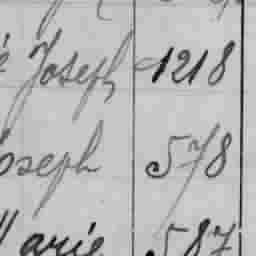 Joseph 1218
Joseph 578
Marie 587